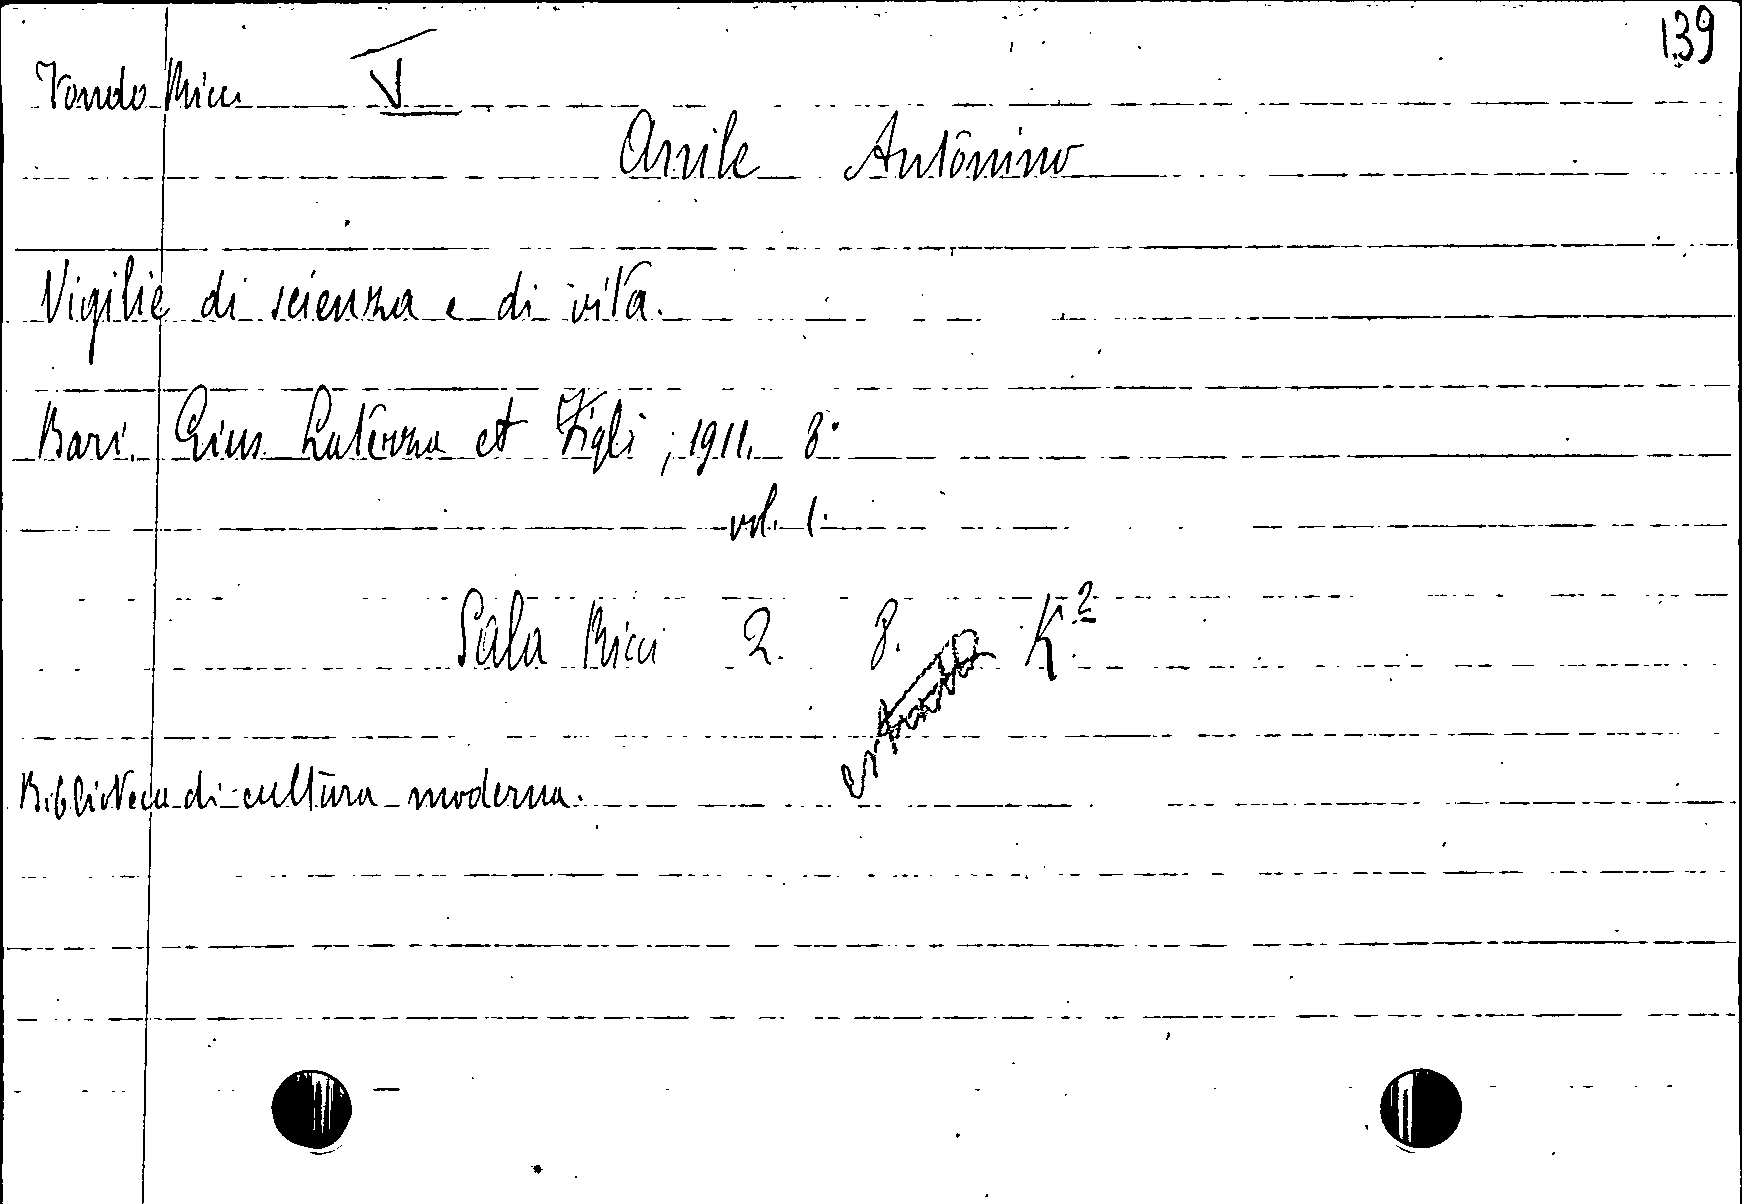 139
Fondo Ricci V
Anile Antonino
Vigilie di scienza e di vita.
Bari. Gius. Laterza et Figli, 1911. 8°
vol. 1.
Sala Ricci 2. 8. K²
estratto
Biblioteca di cultura moderna.